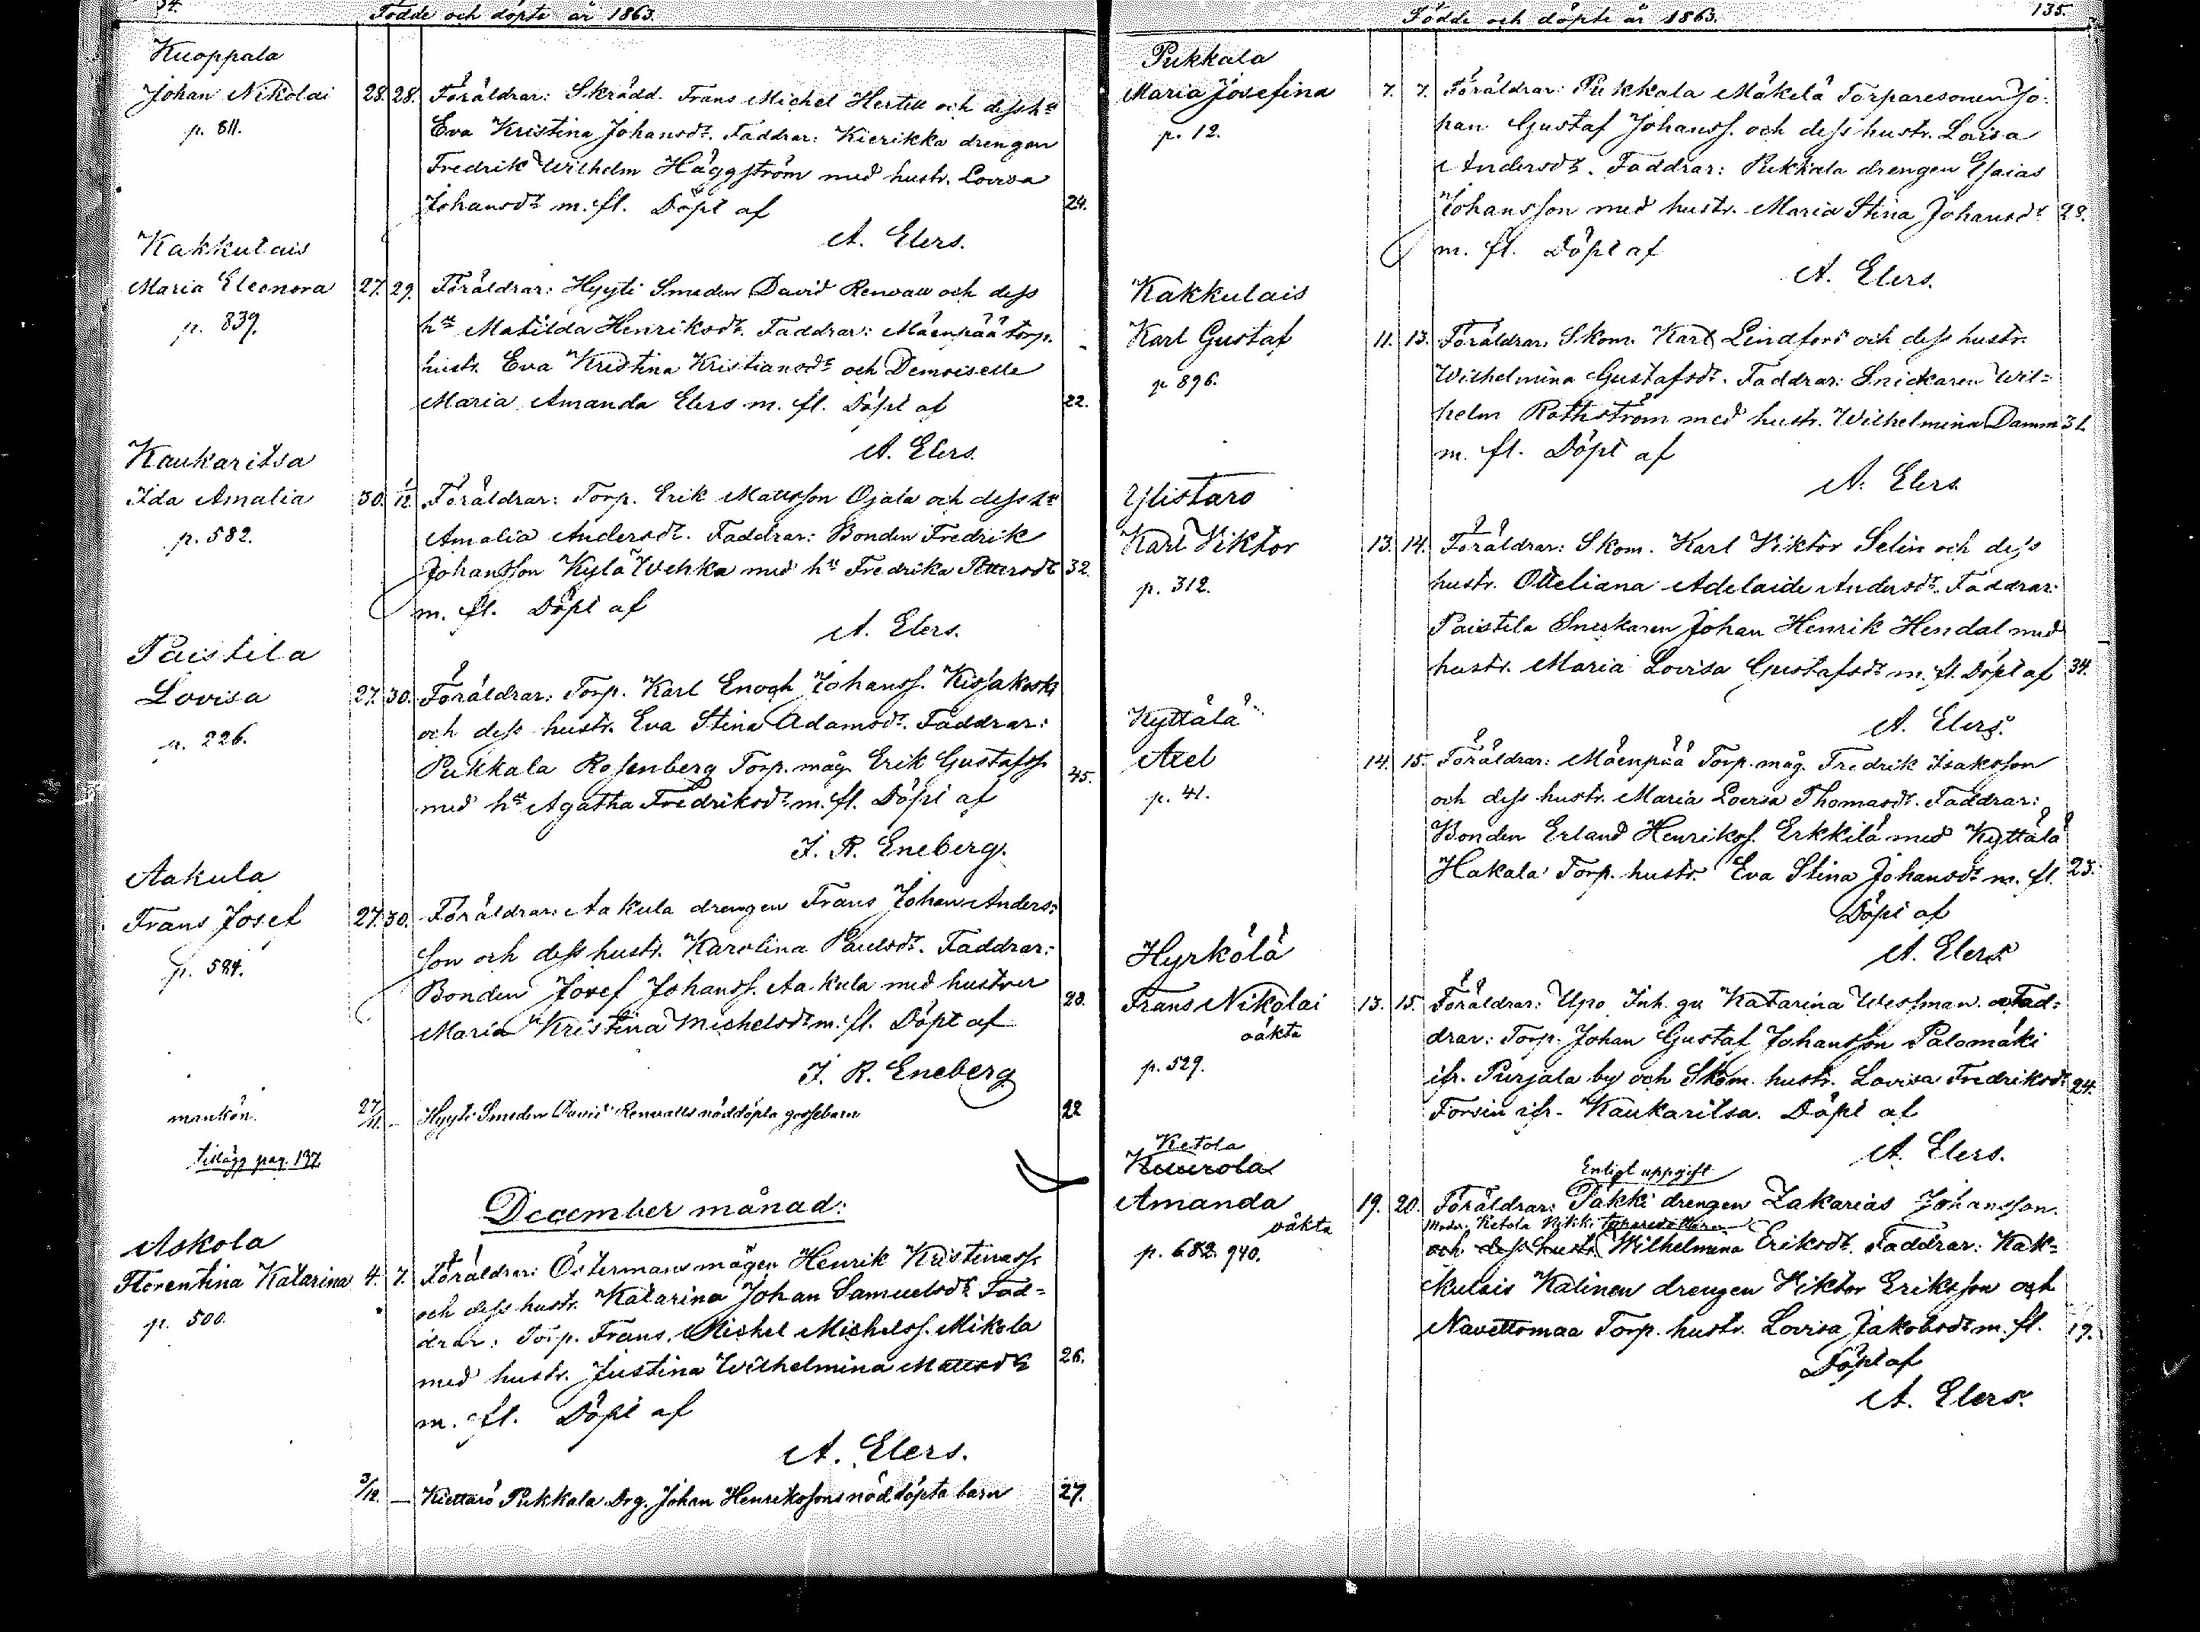 34.
Födde och döpte år 1863.
Kuoppala
Johan Nikolai 28. 28. Föräldrar: Skrädd. Frans Michel Hertell och dess h:u
p. 811. Eva Kristina Johansdr. Faddrar: Kierikka drengen
Fredrik Wilhelm Häggström med hustr. Lovisa
Johansdr m. fl. Döpt af 24.
A. Elers.
Kakkulais
Maria Eleonora 27. 29. Föräldrar: Hyyti Smeden David Renvall och dess
p. 839. h:u Matilda Henriksdr. Faddrar: Mäenpää torp.
hustr. Eva Kristina Kristiansdr och Demoiselle
Maria Amanda Elers m. fl. Döpt af 22.
A. Elers.
Kaukaritsa
Ida Amalia 30. 1/12 Föräldrar: Torp. Erik Mattsson Ojala och dess h:u
p. 582. Amalia Andersdr. Faddrar: Bonden Fredrik
Johansson Kylä Wehka med h:u Fredrika Pettersdr 32.
m. fl. Döpt af
A. Elers.
Paistila
Lovisa 27. 30. Föräldrar: Torp. Karl Enoch Johanss. Kissakoski
p. 226. och dess hustr. Eva Stina Adamsdr. Faddrar:
Pukkala Rosenberg Torp. måg Erik Gustafss. 45.
med h:u Agatha Fredriksdr m. fl. Döpt af
J. R. Eneberg.
Aakula
Frans Josef 27. 30. Föräldrar: Aakula drengen Frans Johan Anders:
son och dess hustr. Karolina Paulsdr. Faddrar:
p. 584. Bonden Josef Johanss. Aakula med hustrer
Maria Kristina Michelsdr m. fl. Döpt af 23.
J. R. Eneberg
mankön. 27/11. — Hyyti Smeden David Renvalls nöddöpta gossebarn 22
tillägg pag. 137.
December månad:
Askola
Florentina Katarina 4. 7. Föräldrar: Östermans mågen Henrik Kristianss.
p. 500. och dess hustr. Katarina Johan Samuelsdr. Fad=
drar: Torp. Frans Michel Michelss. Mikola
med hustr. Justina Wilhelmina Mattsdr 26.
m. fl. Döpt af
A. Elers.
3/12. — Kiettarö Pukkala Drg. Johan Henrikssons nöddöpta barn 27.
Födde och döpte år 1863. 135.
Pukkala
Maria Josefina 7. 7. Föräldrar: Pukkala Mäkelä Torparesonen Jo:
p. 12. han Gustaf Johanss. och dess hustr. Lovisa
Andersdr. Faddrar: Pukkala drengen Esaias
Johansson med hustr. Maria Stina Johansdr 28.
m. fl. Döpt af
A. Elers.
Kakkulais
Karl Gustaf 11. 13. Föräldrar: Skom. Karl Lindfors och dess hustr.
p. 896. Wilhelmina Gustafsdr. Faddrar: Snickaren Wil=
helm Rothström med hustr. Wilhelmina Damm 31.
m. fl. Döpt af
A. Elers
Ylistaro
Karl Viktor 13. 14. Föräldrar: Skom. Karl Viktor Selin och dess
p. 312. hustr. Otteliana Adelaide Andersdr. Faddrar:
Paistila Snickaren Johan Henrik Hendal med
hustr. Maria Lovisa Gustafsdr m. fl. Döpt af 34.
A. Elers.
Kyttälä
Axel 14. 15. Föräldrar: Mäenpää Torp. måg. Fredrik Isaksson
p. 41. och dess hustr. Maria Lovisa Thomasdr. Faddrar:
Bonden Erland Henrikss. Erkkilä med Kyttälä
Hakala Torp. hustr. Eva Stina Johansdr m. fl. 23.
Döpt af
A. Elers
Hyrkölä
Frans Nikolai 13. 15. Föräldrar: Upo Inh. gu Katarina Wessman. Fad:
oäkta drar: Torp. Johan Gustaf Johansson Palomäki
p. 529. ifr. Purjala by och Skom. hustr. Lovisa Fredriksdr 24.
Forsin ifr. Kaukaritsa. Döpt af
A. Elers.
Ketola
Kuurola Enligt uppgift
Amanda 19. 20. Föräldrar: Päkki drengen Zakarias Johansson.
oäkta Moder: Ketola
p. 682 940. och dess hustr. Wilhelmina Eriksdr. Faddrar: Kak=
kulais Kalinen drengen Viktor Eriksson och
Navettomaa Torp. hustr. Lovisa Jakobsdr m. fl. 19.
Döpt af
A. Elers.